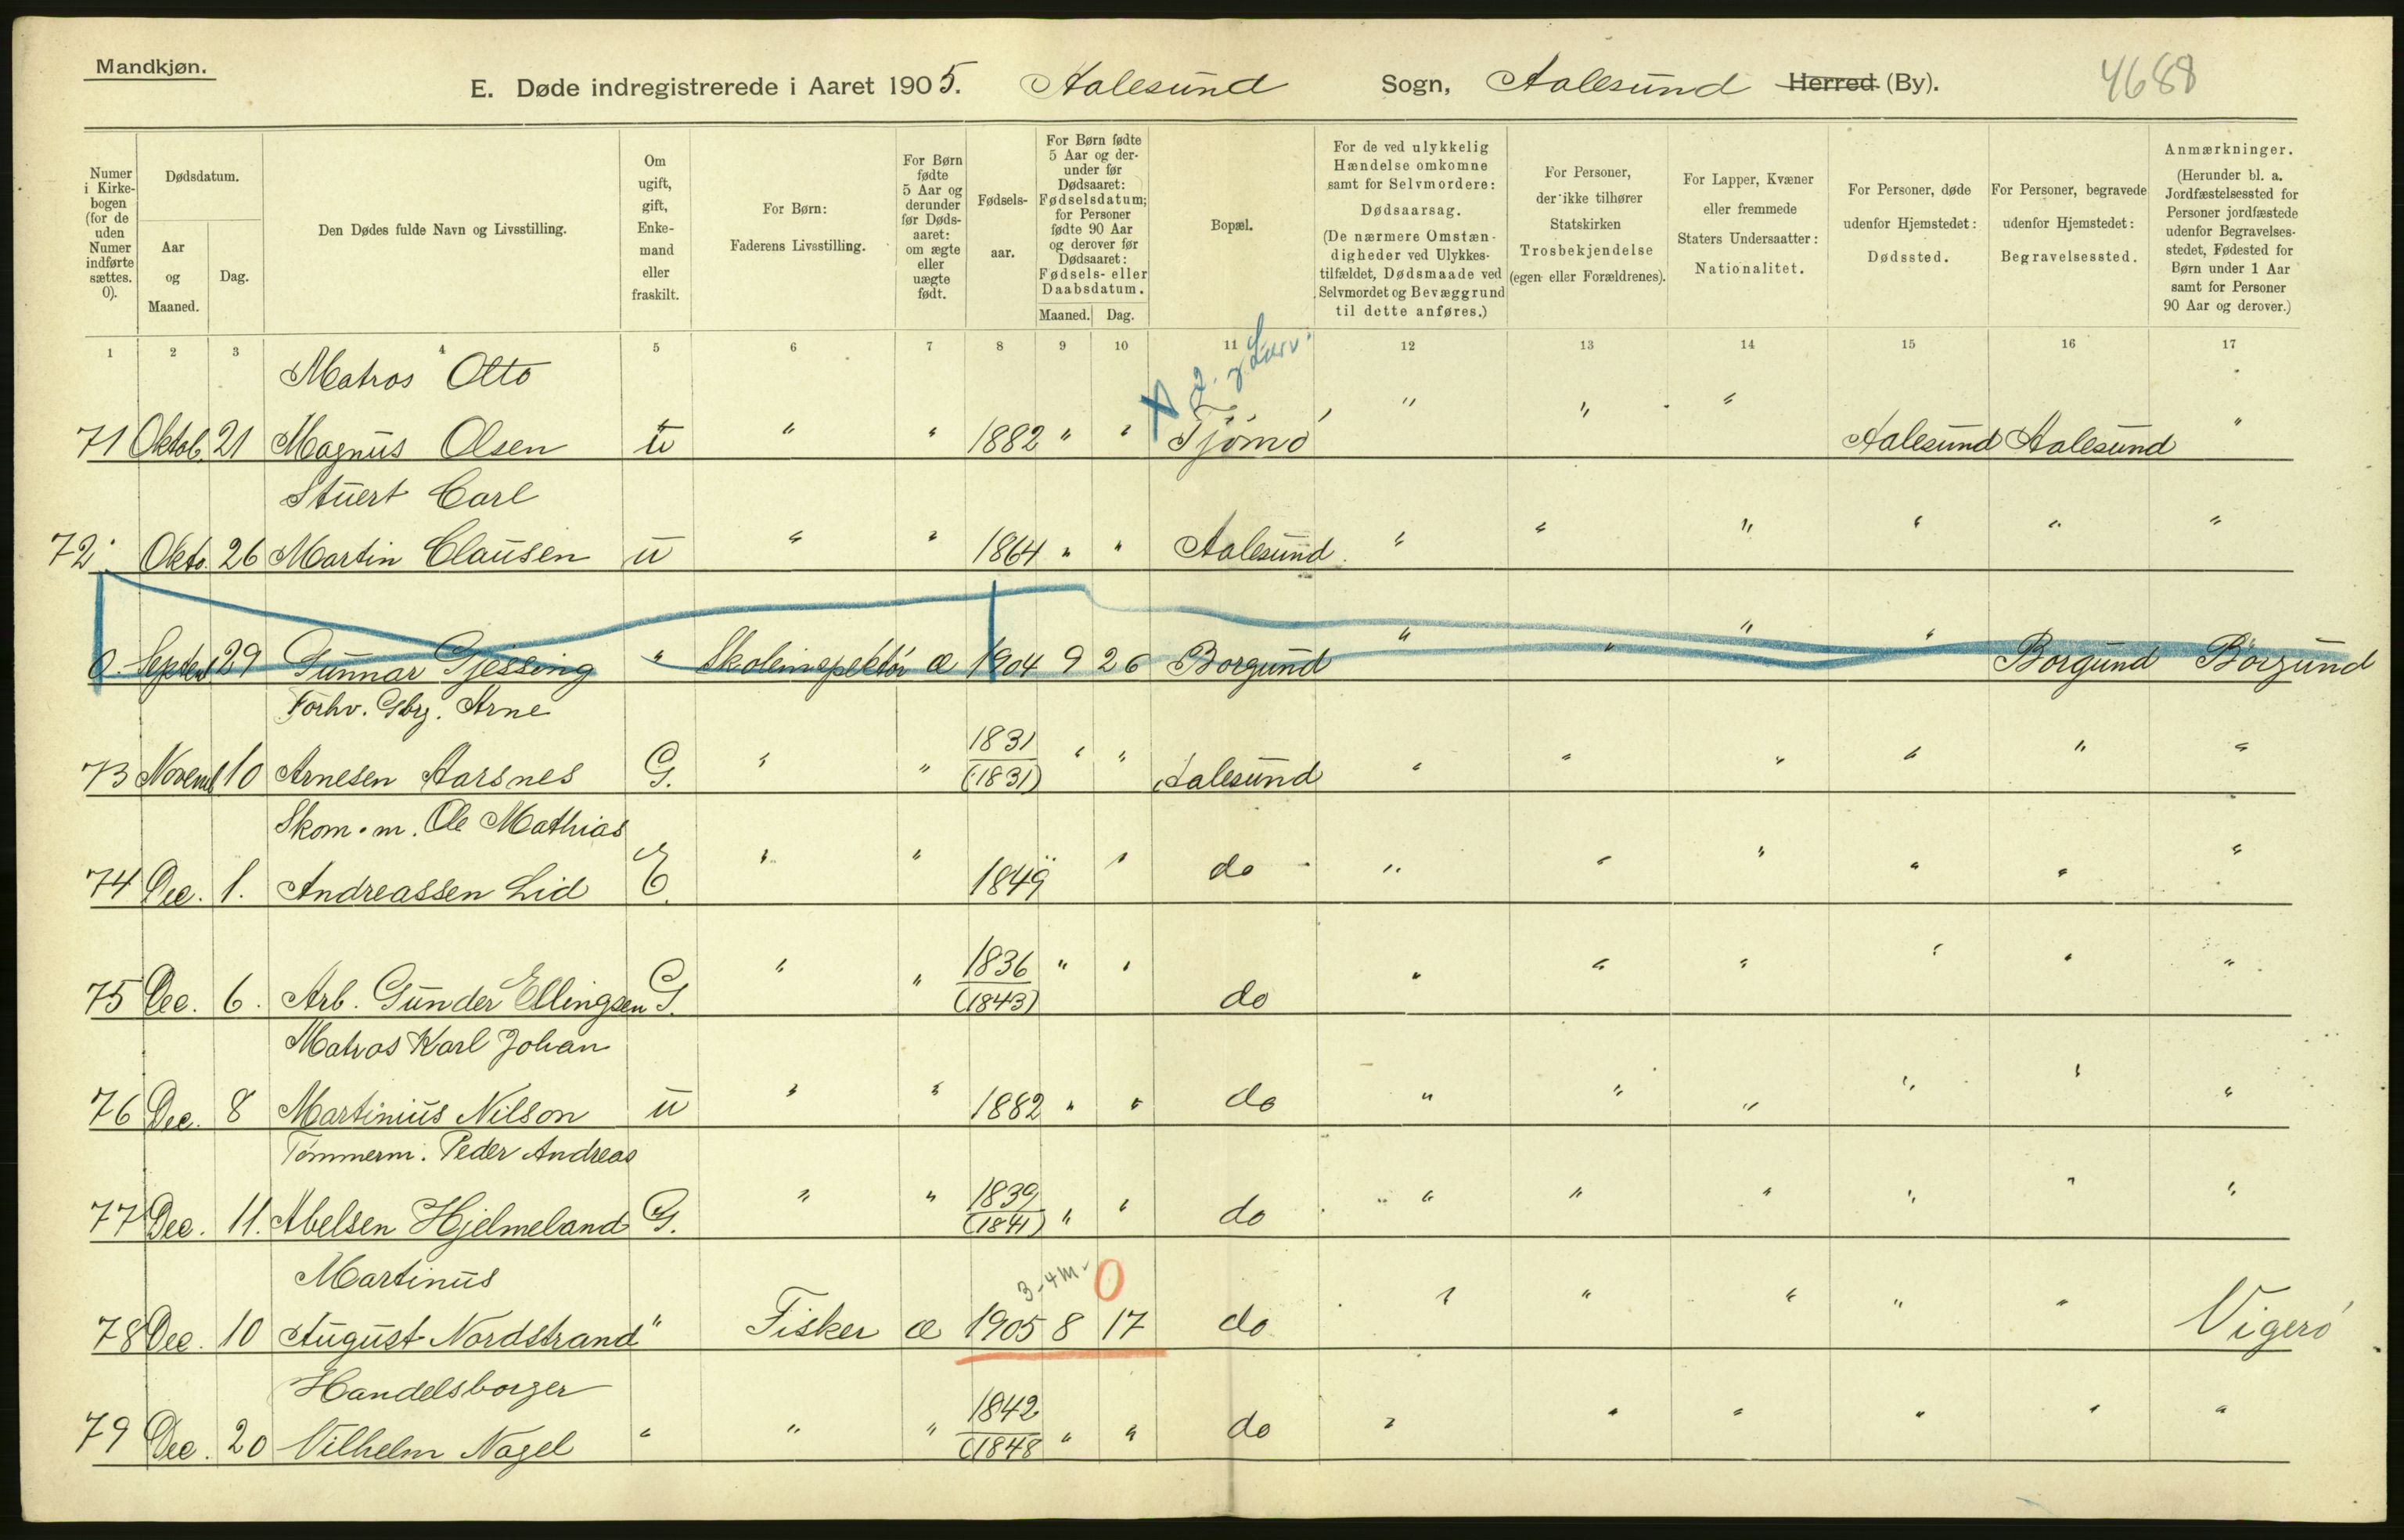 Mandkjøn.
E. Døde indregistrerede i Aaret 1905. Aalesund Sogn, Aalesund Herred (By). 4688
Numer i Kirkebogen (for de uden Numer indførte sættes. 0).
Dødsdatum.
Aar og Maaned.
Dag.
Den Dødes fulde Navn og Livsstilling.
Om ugift, gift, Enkemand eller fraskilt.
For Børn: Faderens Livsstilling.
For Børn fødte 5 Aar og derunder før Dødsaaret: om ægte eller uægte født.
Fødselsaar.
For Børn fødte 5 Aar og derunder før Dødsaaret: Fødselsdatum; for Personer fødte 90 Aar og derover før Dødsaaret: Fødsels- eller Daabsdatum.
Maaned. Dag.
Bopæl.
For de ved ulykkelig Hændelse omkomne samt for Selvmordere: Dødsaarsag. (De nærmere Omstændigheder ved Ulykkestilfældet, Dødsmaade ved Selvmordet og Bevæggrund til dette anføres.)
For Personer, der ikke tilhører Statskirken Trosbekjendelse (egen eller Forældrenes).
For Lapper, Kvæner eller fremmede Staters Undersaatter: Nationalitet.
For Personer, døde udenfor Hjemstedet: Dødssted.
For Personer, begravede udenfor Hjemstedet: Begravelsessted.
Anmærkninger. (Herunder bl. a. Jordfæstelsessted for Personer jordfæstede udenfor Begravelsesstedet, Fødested for Børn under 1 Aar samt for Personer 90 Aar og derover.)
1 2 3 4 5 6 7 8 9 10 11 12 13 14 15 16 17
Matros Otto
71 Oktob. 21 Magnus Olsen u " " 1882 " " Tjømø " " " Aalesund Aalesund "
Stuert Carl
72. Okto. 26 Martin Clausen u " " 1864 " " Aalesund " " " " " "
0. Septemb 29 Gunnar Gjessing " Skoleinspektør æ 1904 9 26 Borgund " " " " Borgund Borgund
Forhv. Gbrg. Arne
1831
73 Novemb 10 Arnesen Aarsnes G. " " (1831) " " Aalesund " " " " " "
Skom.m. Ole Mathias
74 Dec. 1. Andreassen Lid E. " " 1849 " " do " " " " " "
1836
75 Dec. 6. Arb. Gunder Ellingsen G. " " (1843) " " do " " " " " "
Matros Karl Johan
76 Dec. 8 Martinius Nilson u " " 1882 " " do " " " " " "
Tømmerm. Peder Andreas
1839
77 Dec. 11. Abelsen Hjelmeland G. " " (1841) " " do " " " " " "
Martinus 3-4m. 0
78 Dec. 10 August Nordstrand " Fisker æ 1905 8 17 do " " " " " Vigerø
Handelsborger
1842
79 Dec. 20 Vilhelm Nagel " " " (1848 " " do " " " " " "